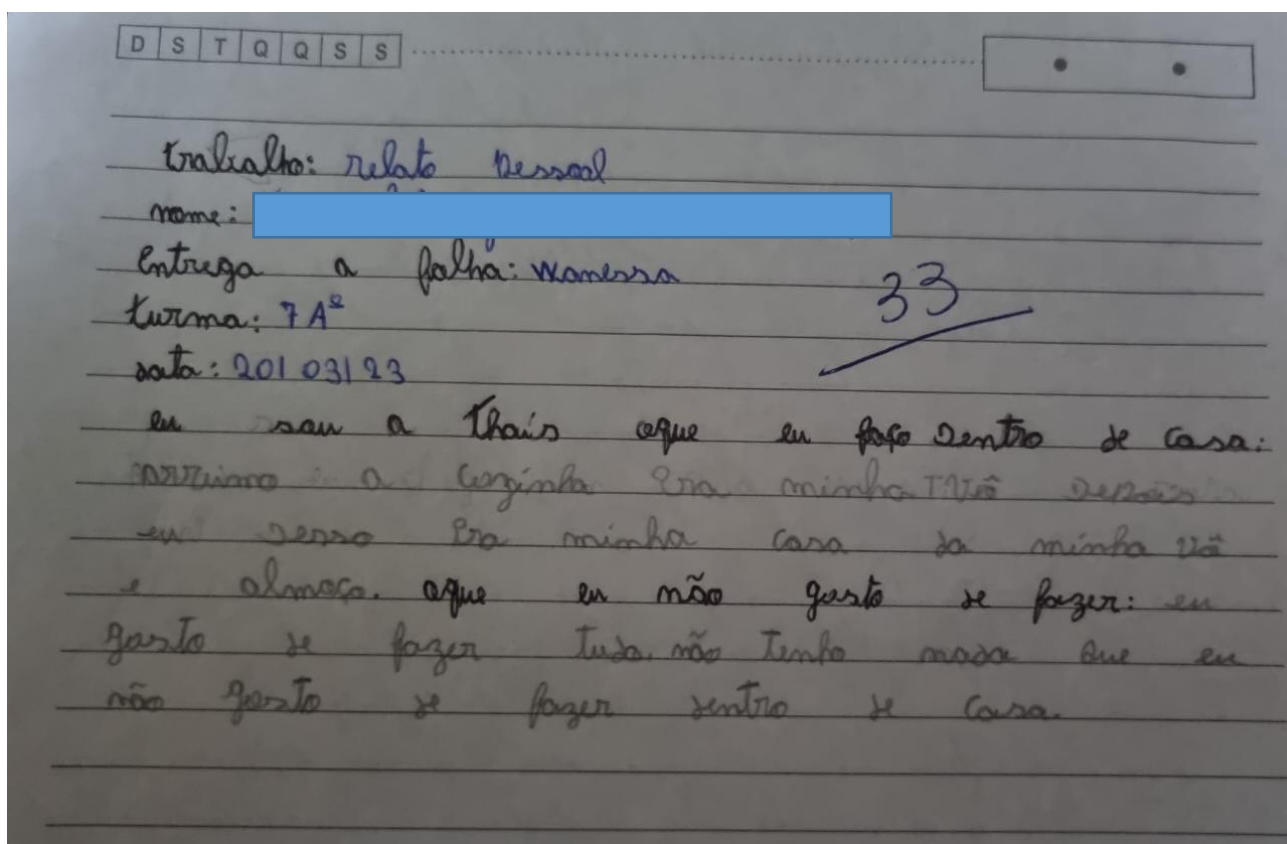 D S T Q Q S S
trabalho: relato pessoal
nome:
entrega a falha: Wanessa
turma: 7 Aº
33
data: 20/03/23
eu sou a Thaís aque eu faço dentro de casa:
arrumo a cozinha pra minha vô depois
eu desso pra minha casa da minha vô
e almoço. aque eu não gosto de fazer: eu
gosto de fazer tudo. não tenho nada que eu
não gosto de fazer dentro de casa.